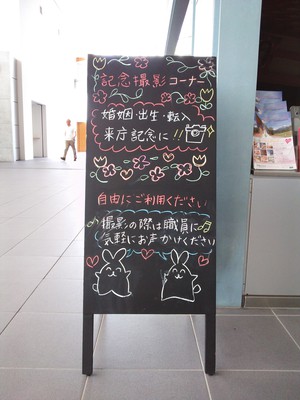 記念撮影コーナー
婚姻・出生・転入
来庁記念に!!
自由にご利用ください
撮影の際は職員に
気軽にお声かけください